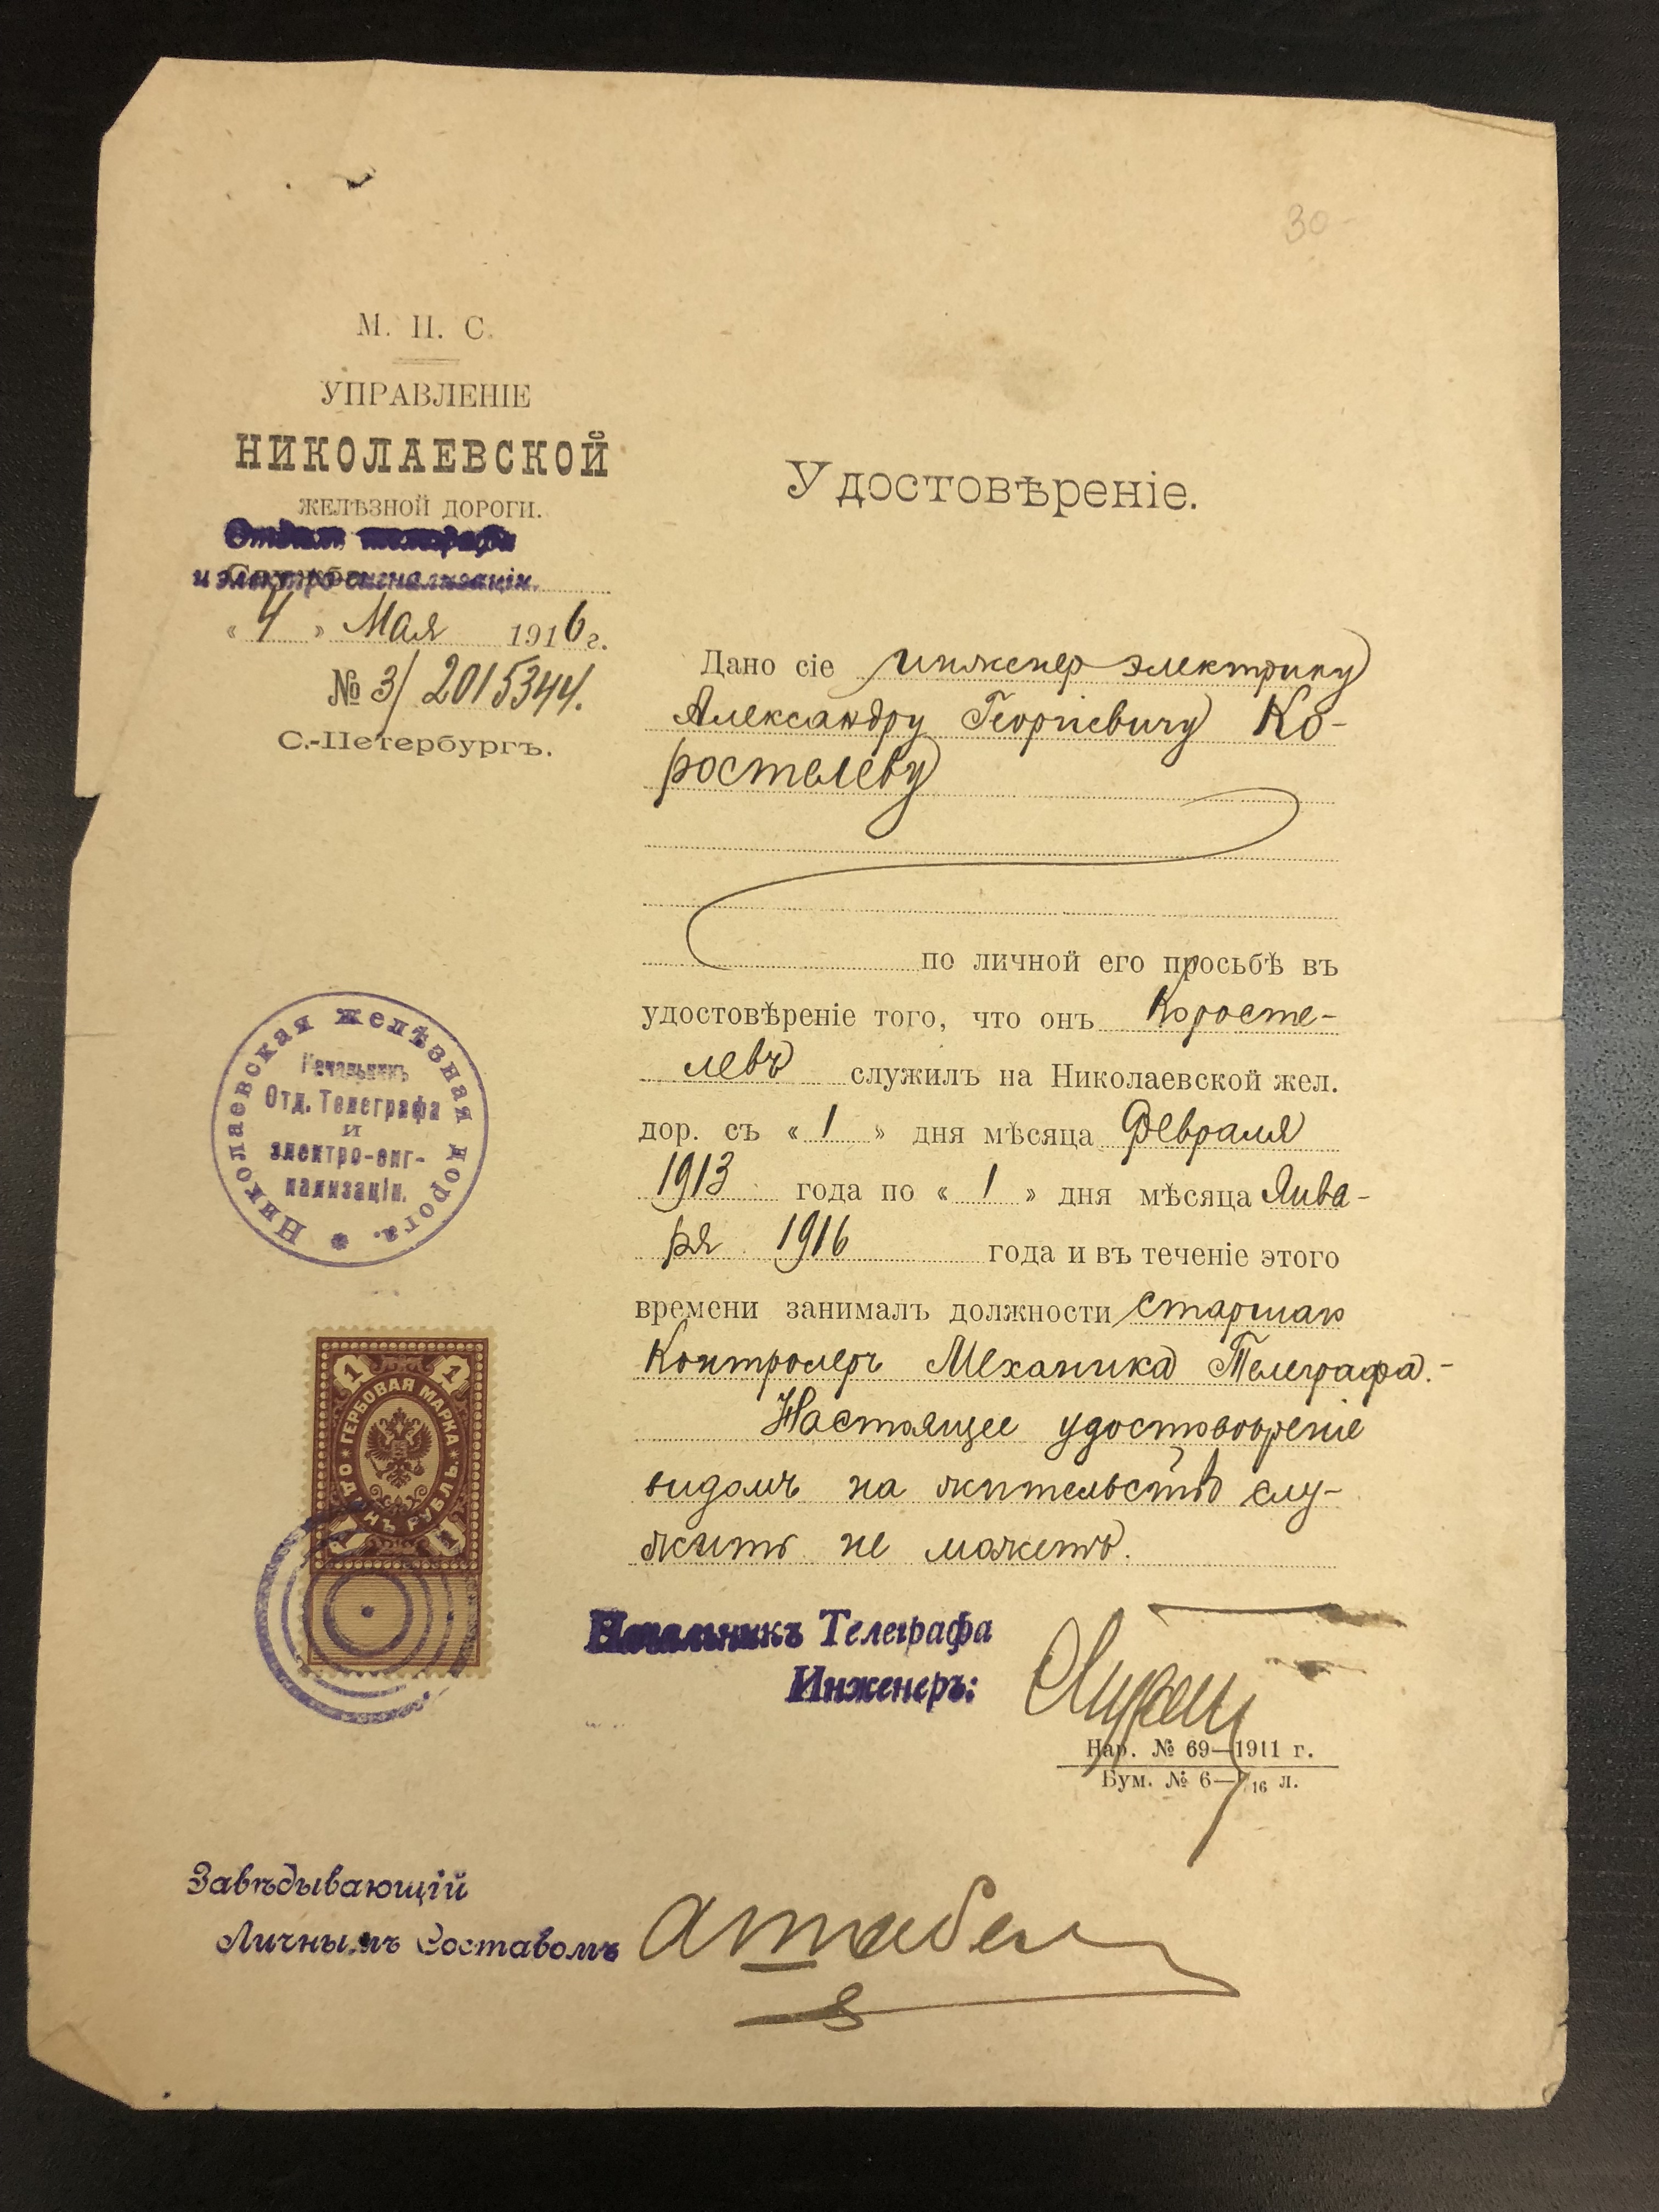 30
М. П. С.
УПРАВЛЕНІЕ
НИКОЛАЕВСКОЙ
ЖЕЛѢЗНОЙ ДОРОГИ.
Отдѣлъ телеграфа
и электро-сигнализаціи.
« 4 » Мая 1916 г.
№ 3/2015344.
С.-Петербургъ.
Удостовѣреніе.
Дано сіе инженер электрику
Александру Георгіевичу Ко-
ростелеву
по личной его просьбѣ въ
удостовѣреніе того, что онъ Коросте-
левъ служилъ на Николаевской жел.
дор. съ « 1 » дня мѣсяца Февраля
1913 года по « 1 » дня мѣсяца Янва-
ря 1916 года и въ теченіе этого
времени занималъ должности старшаго
Контролеръ Механика Телеграфа.-
Настоящее удостовѣреніе
видомъ на жительство слу-
жить не можетъ.
Николаевская желѣзная дорога.
Начальникъ
Отд. Телеграфа
и
электро-сиг-
нализаціи.
1 1
ГЕРБОВАЯ МАРКА
ОДИНЪ РУБЛЬ
1 1
Начальникъ Телеграфа
Инженеръ:
Нар. № 69—1911 г.
Бум. № 6— 16 л.
Завѣдывающій
Личнымъ Составомъ